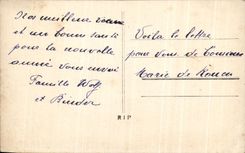 Nos meilleur voeux
et une bonne santé
pour la nouvelle
année vous envoi
Famille Wolf
et Binder
Voila la lettre
pour vous de
Marie de Rouen
RIP